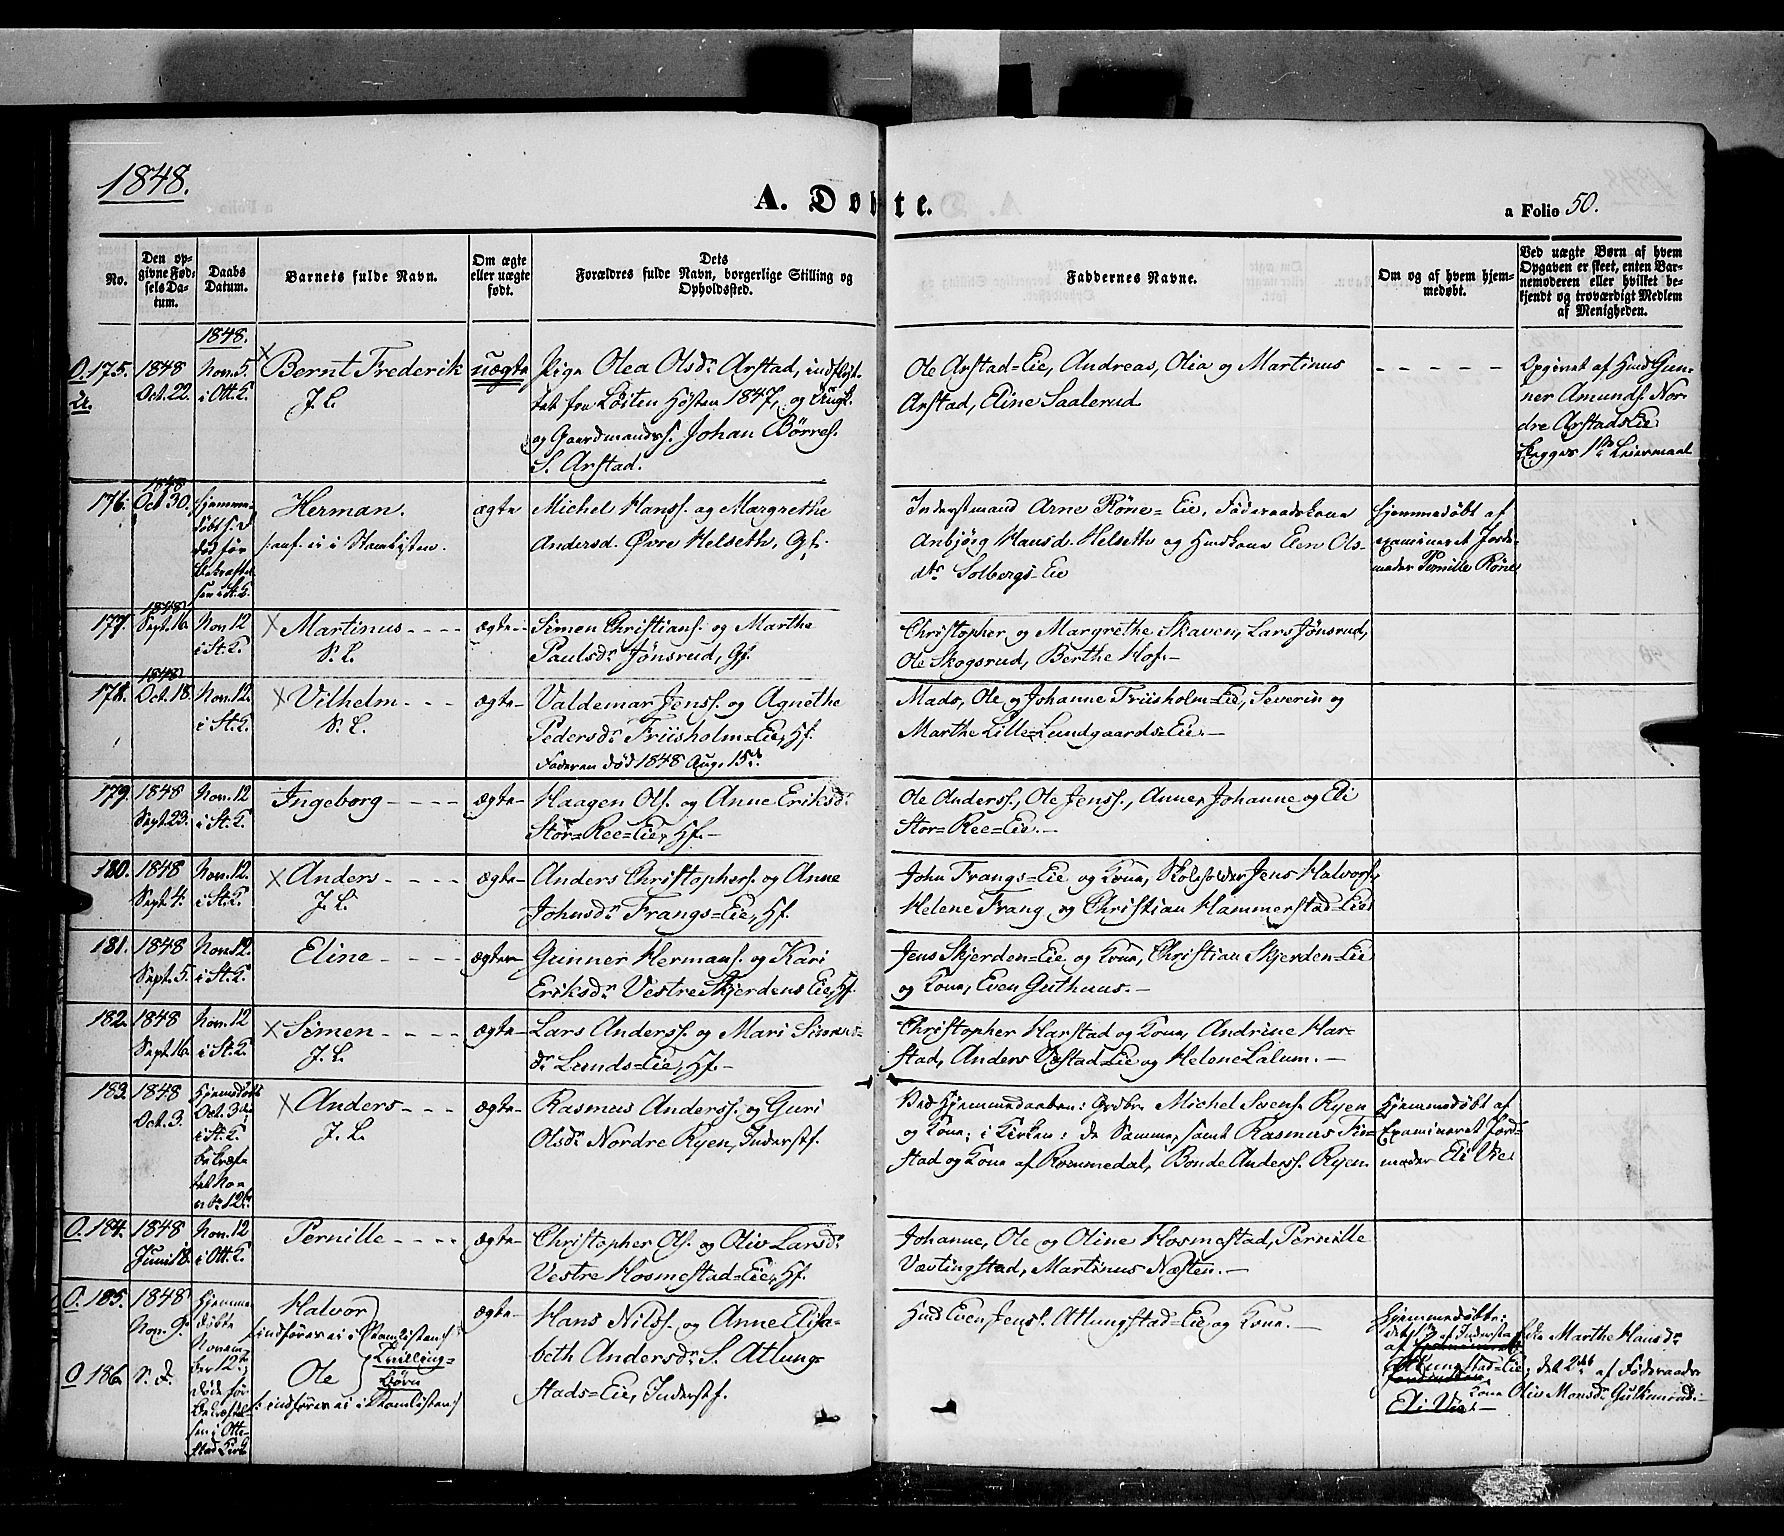 1848.
A. Døbte.
a Folio 50.
No.
Den op-
givne Fød-
sels Da-
tum.
Daabs
Datum.
Barnets fulde Navn.
Om ægte
eller uægte
født.
Dets
Forældres fulde Navn, borgerlige Stilling og
Opholdssted.
Faddernes Navne.
Om og af hvem hjem-
medøbt.
Ved uægte Børn af hvem
Opgaven er skeet, enten Bar-
nemoderen eller hvilket be-
kjendt og troværdigt Medlem
af Menigheden.
1848.
O. 175.
1848
Oct. 22.
Nov. 5.
i Ott. K.
Bernt Frederik
J. L.
uægte
Pige Olea Olsdr Arstad, indflyt-
tet fra Løiten Høsten 1847, og Ungk.
og Gaardmandss. Johan Børres.
S. Arstad.
Ole Arstad=Eie, Andreas, Olia og Martinus
Arstad, Eline Saalerud
Opgivet af Husmd Gun-
ner Amunds. Nor-
dre Arstads Eie
Begges 1ste Leiermaal
176.
1848
Oct 30.
Hjemme-
døbt s. d.
død før
Bekræftel-
sen i St. K.
Herman.
/: anf. ei i Stamlisten.
ægte
Michel Hanss. og Margrethe
Andersd. Øvre Helseth, Gf.
Inderstmand Arne Røne=Eie, Føderaadskone
Anbjørg Hansd. Helseth og Huskone Elen Ols-
dtr Solbergs=Eie
Hjemmedøbt af
examineret Jorde-
moder Pernille Røne
177.
1848
Sept. 16.
Nov 12
i St. K.
Martinus
S. L.
ægte
Simen Christians. og Marthe
Paulsdr Jønsrud, Gf.
Christopher og Margrethe Skaven, Lars Jønsrud,
Ole Skogsrud, Berthe Hof.
178.
1848
Oct. 18.
Nov. 12.
i St. K.
Vilhelm
S. L.
ægte
Valdemar Jenss. og Agnethe
Pedersdr Friisholm=Eie, Hf.
Faderen død 1848 Aug. 15de.
Mads, Ole og Johanne Friisholm=Eie, Severin og
Marthe Lille=Lundgaards=Eie.
179.
1848
Sept. 23.
Nov. 12
i St. K.
Ingeborg
ægte
Haagen Ols. og Anne Eriksdr
Stor=Ree=Eie, Hf.
Ole Anderss., Ole Jenss., Anne, Johanne og Eli
Stor=Ree=Eie.
180.
1848
Sept. 4.
Nov. 12.
i St. K.
Anders
J. L.
ægte
Anders Christophers. og Anne
Johnsdr Frangs=Eie, Hf.
John Frangs=Eie og Kone, Skoleholder Jens Halvors.,
Helene Frang og Christian Hammerstad=Eie
181.
1848
Sept. 5.
Nov. 12.
i St. K.
Eline
ægte
Gunner Hermans. og Kari
Eriksdr Vestre Skjerdens Eie, Hf.
Jens Skjerden=Eie og Kone, Christian Skjerden=Eie
og Kone, Even Guthuus.
182.
1848
Sept. 16.
Nov. 12
i St. K.
Simen
J. L.
ægte
Lars Anderss. og Mari Simens-
dr Lunds=Eie, Hf.
Christopher Harstad og Kone, Andrine Har-
stad, Anders Vestad=Eie og Helene Lalum.
183.
1848
Oct. 3.
Hjemdøbt
Oct. 3die
i St. K.
bekræf-
tet No-
vbr 12te
Anders
J. L.
ægte
Rasmus Anderss. og Guri
Olsdr Nordre Ryen, Inderstf.
Ved Hjemmedaaben: Grdbr. Michel Svens. Ryen
og Kone; i Kirken: de Samme, samt Rasmus Fin-
stad og Kone af Rommedal, Bonde Anders. Ryen.
Hjemmedøbt af
Examineret Jord-
moder Eli Vie
O. 184.
1848
Juni 18.
Nov. 12
i Ott. K.
Pernille
ægte
Christopher Ols. og Oliv Larsdr
Vestre Hosmestad=Eie, Hf.
Johanne, Ole og Oline Hosmestad, Pernille
Vævlingstad, Martinus Næsten.
O. 185.
1848
Nov. 9.
Hjemme-
døbte
Novem-
ber 12te
døde før
Bekræftel-
sen i Otte-
stad Kirke
Halvor
/: indføres ei i Stamlisten :/
Tvilling-
børn
O. 186.
S. D.
Ole
/: indføres ei i Stamlisten :/
ægte
Hans Nilss. og Anne Elisa-
beth Andersdr S. Atlung-
stads=Eie, Inderstf.
Husmd Even Jenss. Atlungstad=Eie og Kone.
Hjemmedøbte:
det 1ste af Inderstenke Marthe Hansdr
Atlungstad=Eie, det 2det af Føderaads-
kone Olia Monsdr
Eli Vie.